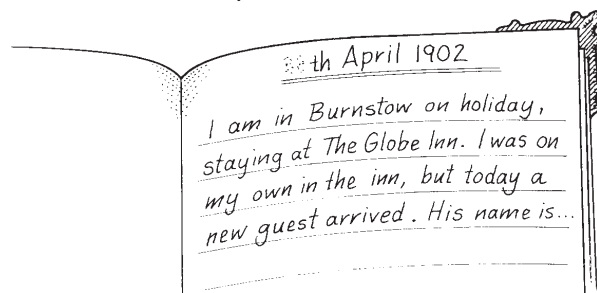 th April 1902
I am in Burnstow on holiday,
staying at The Globe Inn. I was on
my own in the inn, but today a
new guest arrived. His name is...